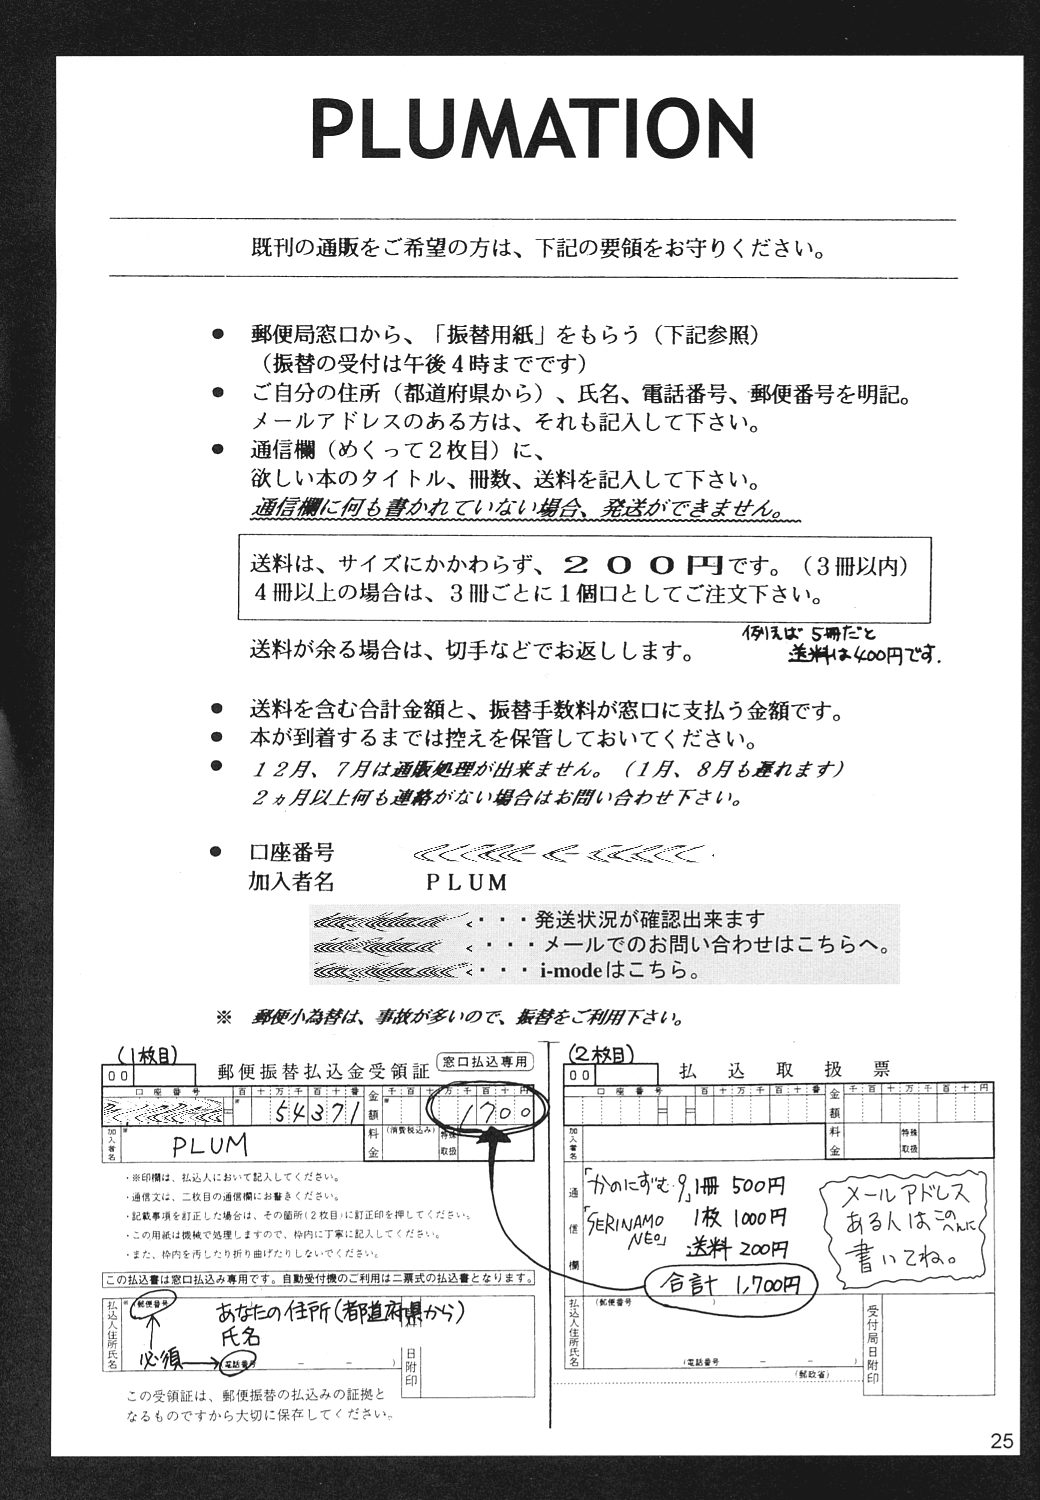 PLUMATION
既刊の通販をご希望の方は、下記の要領をお守りください。
● 郵便局窓口から、「振替用紙」をもらう（下記参照）
（振替の受付は午後４時までです）
● ご自分の住所（都道府県から）、氏名、電話番号、郵便番号を明記。
メールアドレスのある方は、それも記入して下さい。
● 通信欄（めくって２枚目）に、
欲しい本のタイトル、冊数、送料を記入して下さい。
通信欄に何も書かれていない場合、発送ができません。
送料は、サイズにかかわらず、２００円です。（３冊以内）
４冊以上の場合は、３冊ごとに１個口としてご注文下さい。
例えば 5冊だと
送料は400円です.
送料が余る場合は、切手などでお返しします。
● 送料を含む合計金額と、振替手数料が窓口に支払う金額です。
● 本が到着するまでは控えを保管しておいてください。
● １２月、７月は通販処理が出来ません。（１月、８月も遅れます）
２ヵ月以上何も連絡がない場合はお問い合わせ下さい。
● 口座番号
加入者名 ＰＬＵＭ
<・・・発送状況が確認出来ます
<・・・メールでのお問い合わせはこちらへ。
<・・・ i-modeはこちら。
※ 郵便小為替は、事故が多いので、振替をご利用下さい。
(1枚目)
00
郵便振替払込金受領証
窓口払込専用
口座番号 百十万千百十番 金額 千百十万千百十円
54371
1700
加入者名
PLUM
料金
(消費税込み)
特殊取扱
・※印欄は、払込人において記入してください。
・通信文は、二枚目の通信欄にお書きください。
・記載事項を訂正した場合は、その箇所(２枚目)に訂正印を押してください。
・この用紙は機械で処理しますので、枠内に丁寧に記入してください。
・また、枠内を汚したり折り曲げたりしないでください。
この払込書は窓口払込み専用です。自動受付機のご利用は二票式の払込書となります。
払込人住所氏名
(郵便番号
あなたの住所(都道府県から)
氏名
必須
(電話番号 － － )
日附印
この受領証は、郵便振替の払込みの証拠と
なるものですから大切に保存してください。
(2枚目)
00
払込取扱票
口座番号 百十万千百十番 金額 千百十万千百十円
加入者名
料金
特殊取扱
通信欄
「かのにずむ・9」1冊 500円
「SERINAMO
NEO」 1枚 1000円
送料 200円
合計 1,700円
メールアドレス
ある人はこのへんに
書いてね。
払込人住所氏名
(郵便番号 )
(電話番号 － － )
(郵政省)
受付局日附印
25